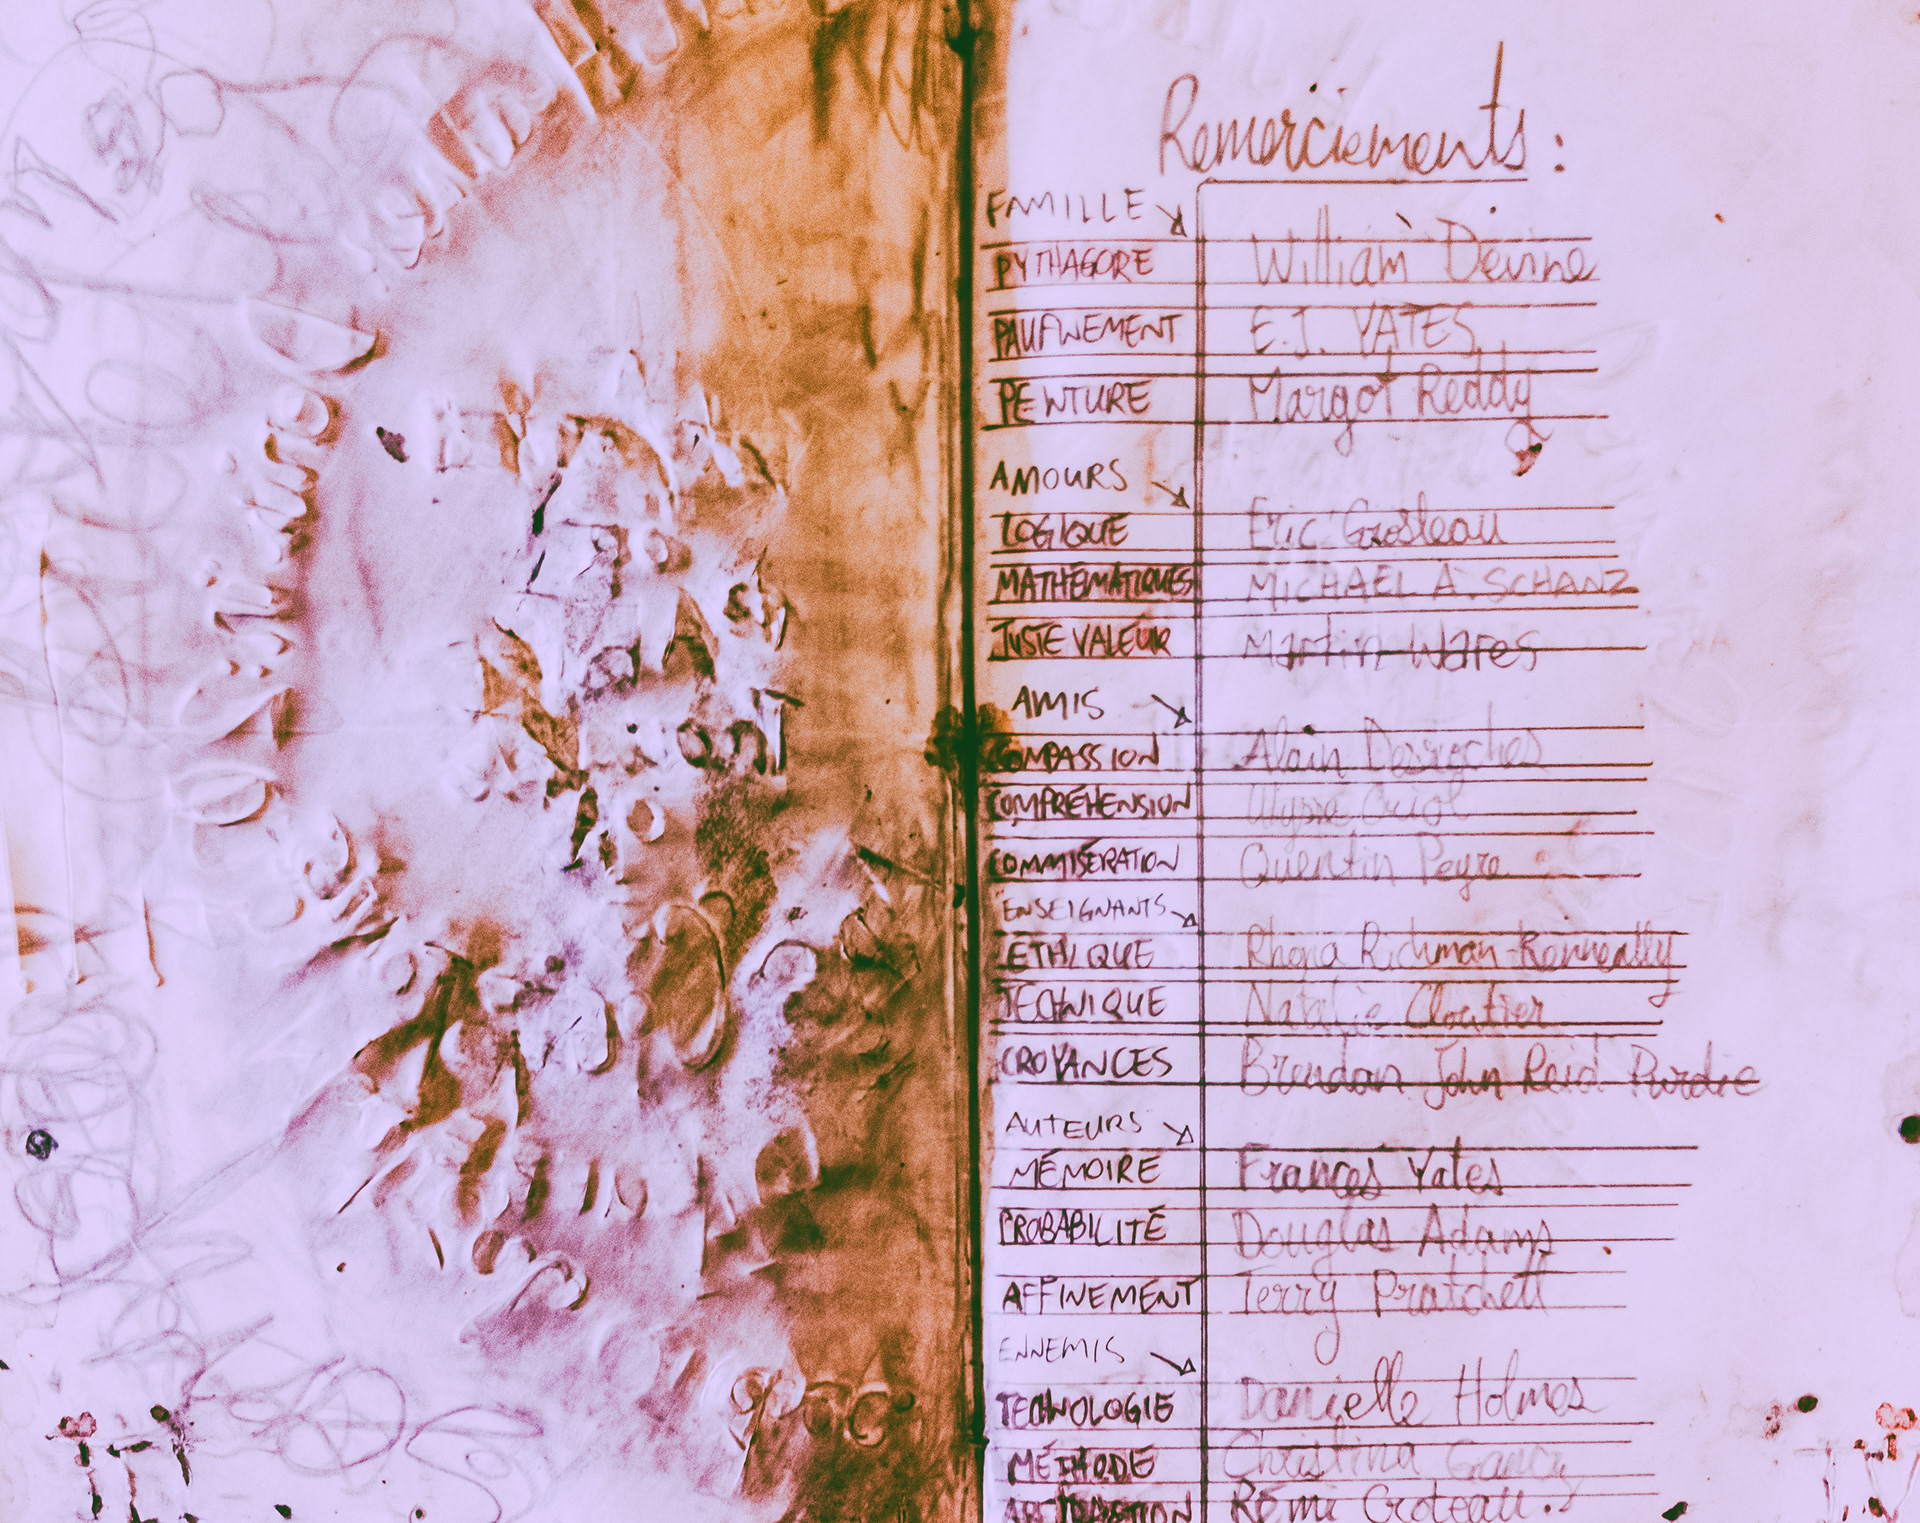 Remerciements :
FAMILLE
PYTHAGORE William Devine
PAUFINEMENT E.J. YATES
PEINTURE Margot Reddy
AMOURS
LOGIQUE Eric Grosleau
MATHÉMATIQUES MICHAEL A. SCHANZ
JUSTE VALEUR Martin Wares
AMIS
COMPASSION Alain Desroches
COMPRÉHENSION Ulysse Oriol
COMMISÉRATION Quentin Peyre
ENSEIGNANTS
ÉTHIQUE Rhona Richman-Kenneally
TECHNIQUE Natalie Cloutier
CROYANCES Brendan John Reid Purdie
AUTEURS
MÉMOIRE Frances Yates
PROBABILITÉ Douglas Adams
AFFINEMENT Terry Pratchett
ENNEMIS
TECHNOLOGIE Danielle Holmes
MÉTHODE Christina
Rémi Croteau